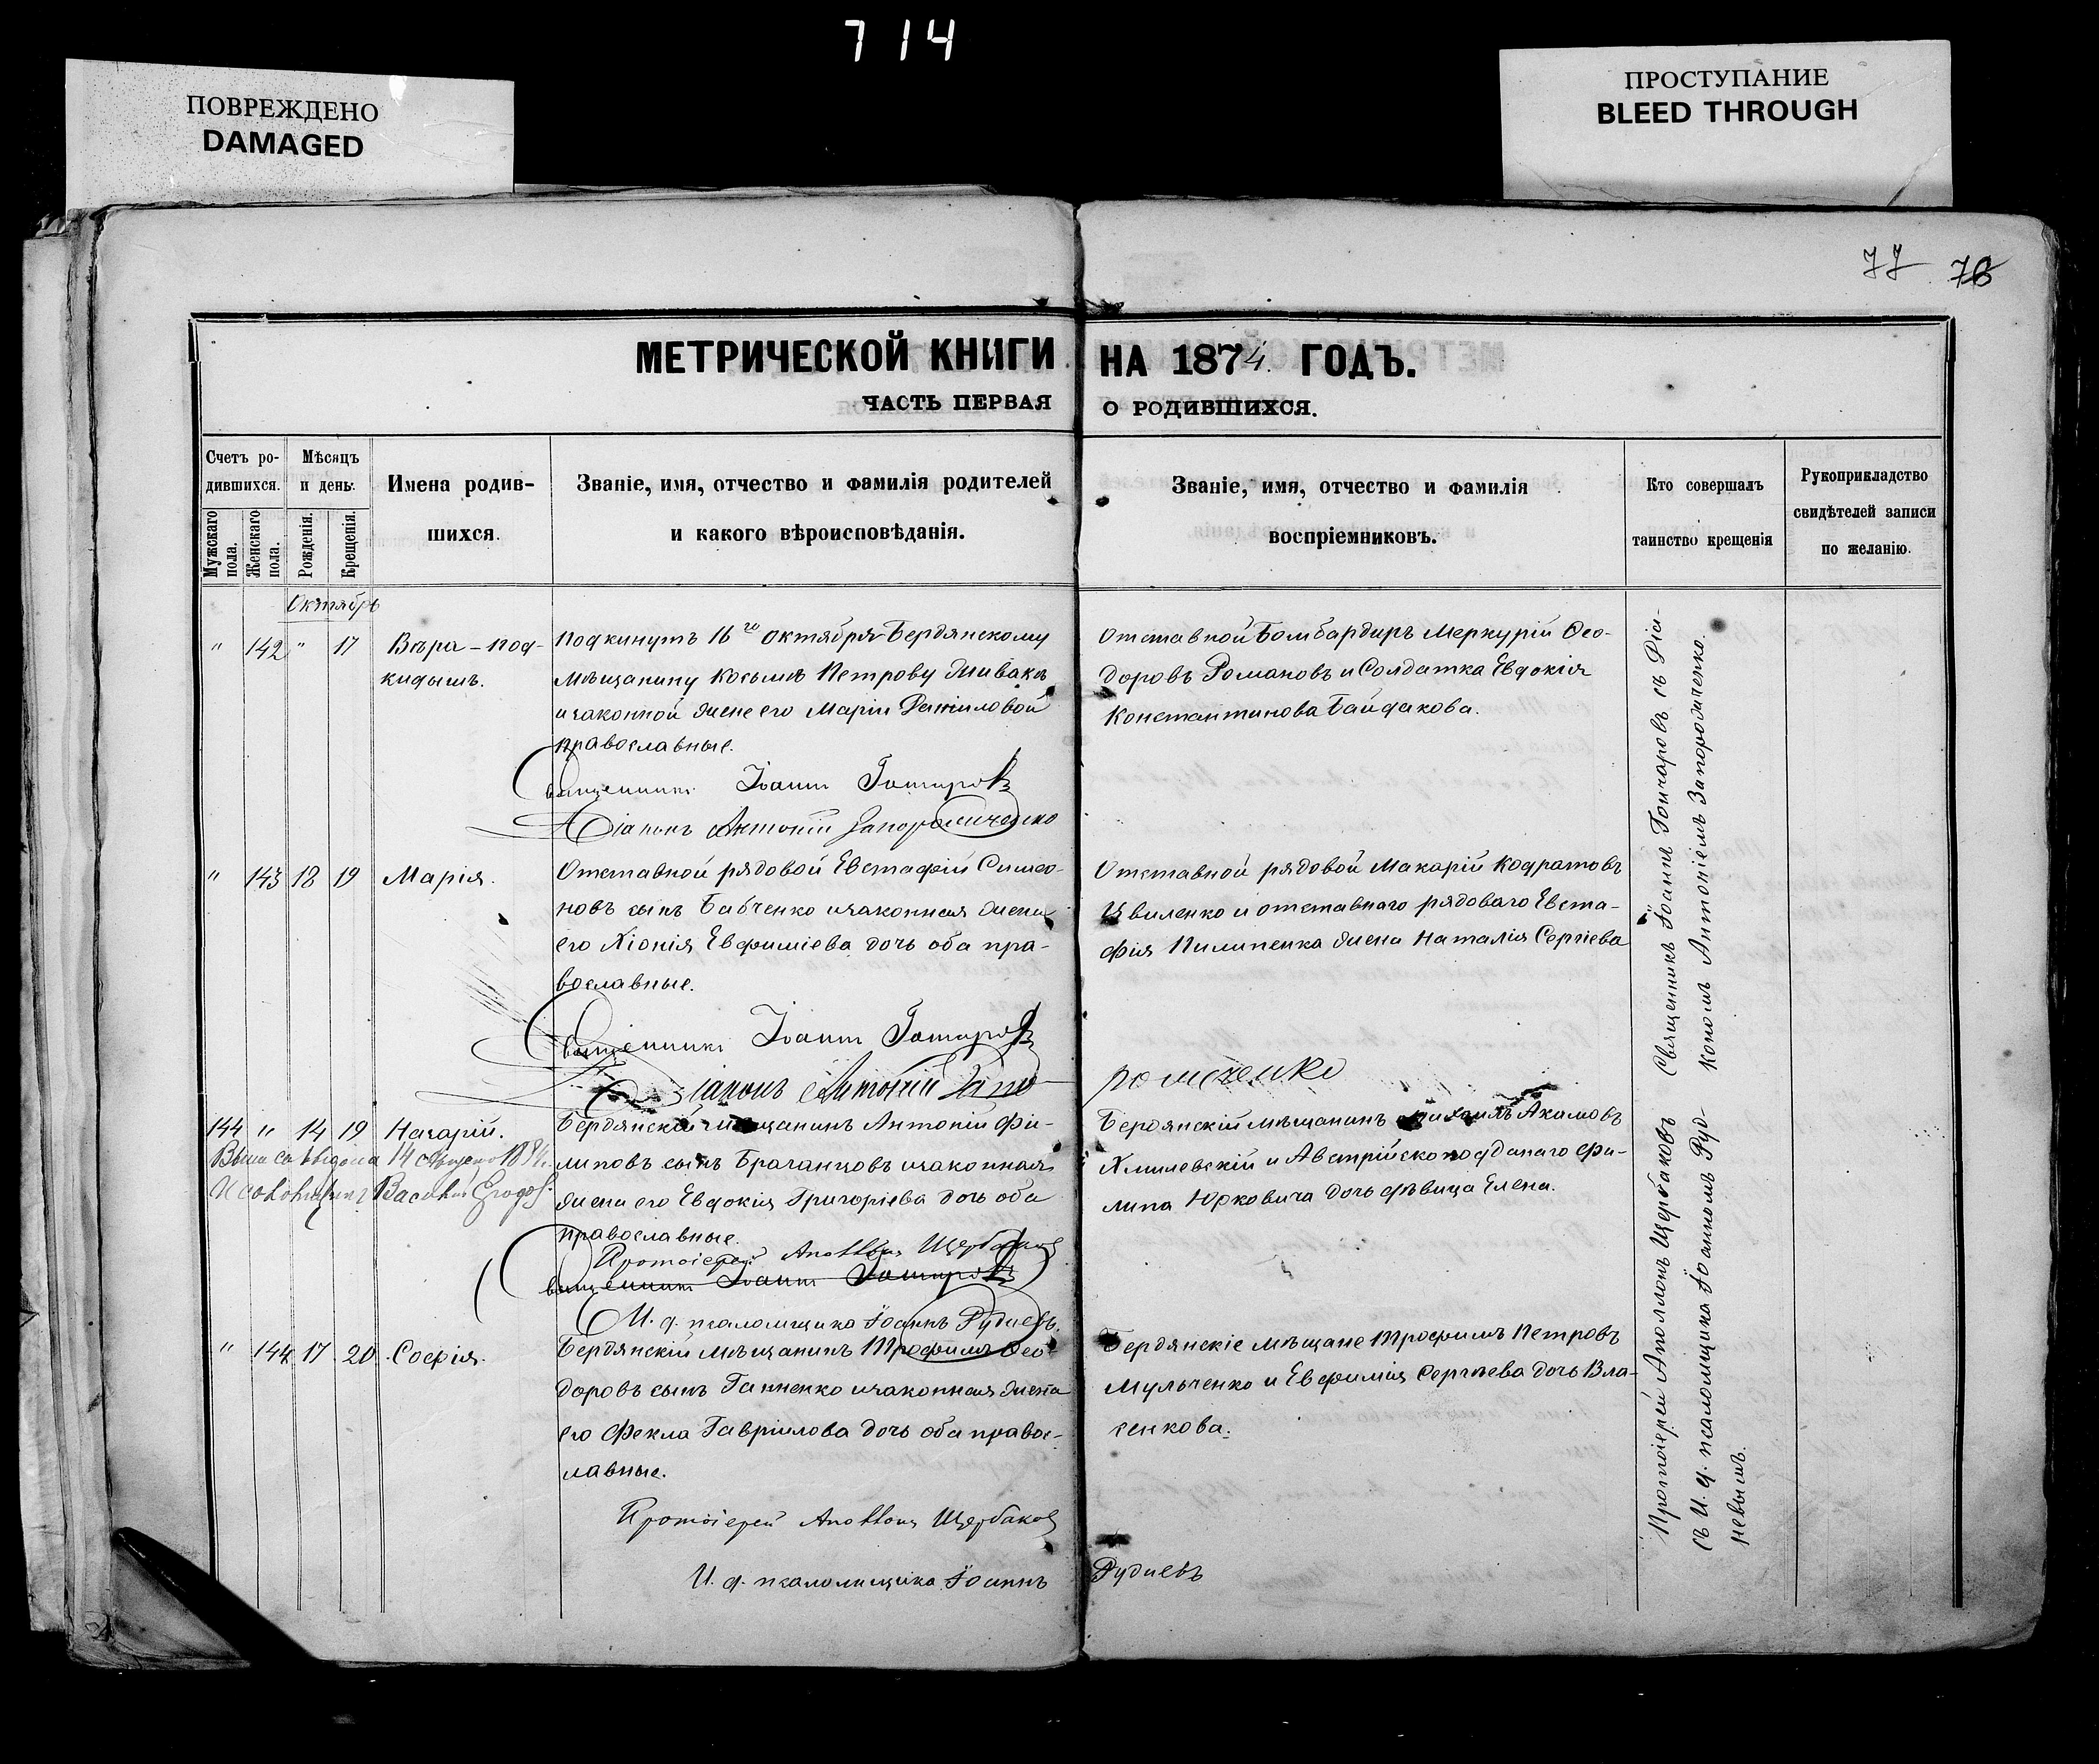 714
ПОВРЕЖДЕНО
DAMAGED
ПРОСТУПАНИЕ
BLEED THROUGH
77 76
МЕТРИЧЕСКОЙ КНИГИ НА 1874 ГОДЪ.
ЧАСТЬ ПЕРВАЯ О РОДИВШИХСЯ.
Счетъ ро-
дившихся.
Мужскаго пола.
Женскаго пола.
Мѣсяцъ
и день.
Рожденія.
Крещенія.
Имена родив-
шихся.
Званіе, имя, отчество и фамилія родителей
и какого вѣроисповѣданія.
Званіе, имя, отчество и фамилія
воспріемниковъ.
Кто совершалъ
таинство крещенія
Рукоприкладство
свидѣтелей записи
по желанію.
Октябрь
" 142 " 17 Вѣра – под-
кидышъ.
Подкинутъ 16го Октября Бердянскому
мѣщанину Косьмѣ Петрову
и законной жене его Маріи Даниловой
православные.
Священникъ Іоаннъ Гончаровъ
Діаконъ Антоній Запорожченко
Отставной Бомбардиръ Меркурій Ѳео-
доровъ Романовъ и Солдатка Евдокія
Константинова Байдакова.
" 143 18 19 Марія.
Отставной рядовой Евстафій Симео-
новъ сынъ Бабченко и законная жена
его Хіонія Евфиміева дочь оба пра-
вославные.
Священникъ Іоаннъ Гончаровъ
Діаконъ Антоній Запо-
рожченко
Отставной рядовой Макарій Кодратовъ
Цвиленко и отставнаго рядоваго Евста-
фія Пилипенка жена Наталія Сергіева
144 " 14 19 Назарій.
14 188
Василій
Бердянскій мѣщанинъ Антоній Фи-
липовъ сынъ Браганцовъ и законная
жена его Евдокія Григоріева дочь оба
православные.
Протоіерей Аполлонъ Щербаковъ
Священникъ Іоаннъ Гончаровъ
И. д. псаломщика Іоаннъ Рудневъ.
Бердянскій мѣщанинъ Михаилъ Акимовъ
Хмилевскій и Австрійскоподданаго Фи-
липа Юрковича дочь дѣвица Елена.
" 144 17 20 Софія.
Бердянскій мѣщанинъ Трофимъ Ѳео-
доровъ сынъ Гапненко и законная жена
его Фекла Гавріилова дочь оба правос-
лавные.
Протоіерей Аполлонъ Щербаковъ
И. д. псаломщика Іоаннъ Рудневъ
Бердянскіе мѣщане Трофимъ Петровъ
Мульченко и Евфимія Сергѣева дочь Вла-
сенкова.
Священникъ Іоаннъ Гончаровъ съ Діа-
кономъ Антоніемъ Запорожченко.
Протоіерей Аполлонъ Щербаковъ
съ И. д. псаломщика Іоанномъ Руд-
невымъ.